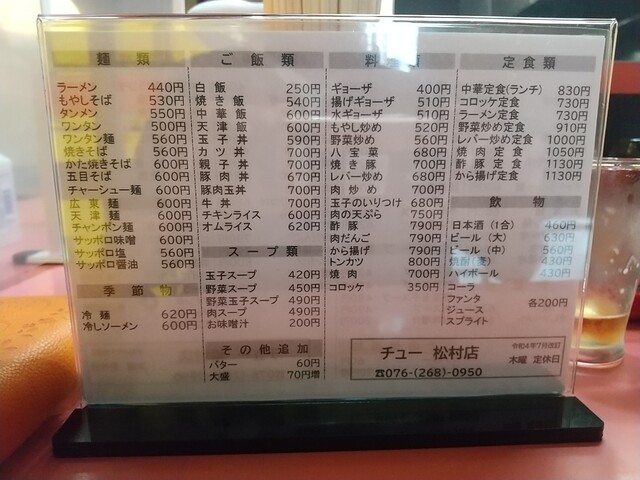 麺類
ラーメン 440円
もやしそば 530円
タンメン 550円
ワンタン 500円
ワンタン麺 560円
焼きそば 560円
かた焼きそば 600円
五目そば 600円
チャーシュー麺 600円
広東麺 600円
天津麺 600円
チャンポン麺 600円
サッポロ味噌 600円
サッポロ塩 560円
サッポロ醤油 560円
季節物
冷麺 620円
冷しソーメン 600円
ご飯類
白飯 250円
焼き飯 540円
中華飯 600円
天津飯 600円
玉子丼 590円
カツ丼 700円
親子丼 700円
豚肉丼 670円
豚肉玉丼 700円
牛丼 700円
チキンライス 600円
オムライス 620円
スープ類
玉子スープ 420円
野菜スープ 450円
野菜玉子スープ 490円
肉スープ 490円
お味噌汁 200円
その他追加
バター 60円
大盛 70円増
料
ギョーザ 400円
揚げギョーザ 510円
水ギョーザ 510円
もやし炒め 520円
野菜炒め 560円
八宝菜 680円
焼き豚 700円
レバー炒め 680円
肉炒め 700円
玉子のいりつけ 680円
肉の天ぷら 750円
酢豚 790円
肉だんご 790円
から揚げ 790円
トンカツ 800円
焼肉 700円
コロッケ 350円
定食類
中華定食(ランチ) 830円
コロッケ定食 730円
ラーメン定食 730円
野菜炒め定食 910円
レバー炒め定食 1000円
焼肉定食 1050円
酢豚定食 1130円
から揚げ定食 1130円
飲物
日本酒(1合) 460円
ビール(大) 630円
ビール(中) 560円
焼酎(麦) 430円
ハイボール 430円
コーラ
ファンタ
ジュース
スプライト
各200円
チュー 松村店
☎076-(268)-0950
令和4年7月改訂
木曜 定休日